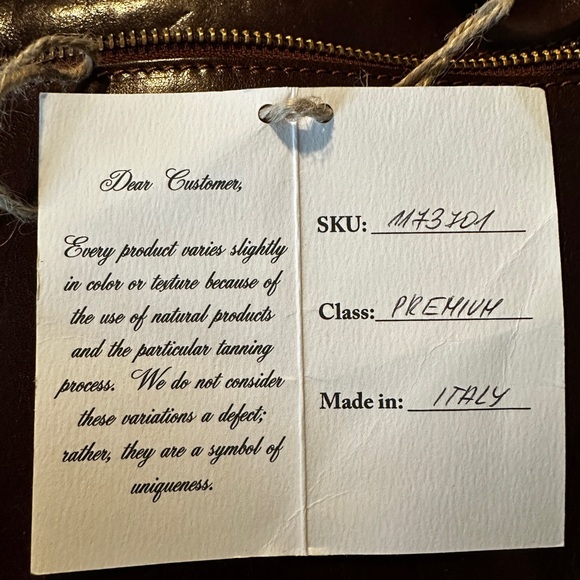 Dear Customer,
Every product varies slightly
in color or texture because of
the use of natural products
and the particular tanning
process. We do not consider
these variations a defect;
rather, they are a symbol of
uniqueness.
SKU: 1173701
Class: PREMIUM
Made in: ITALY